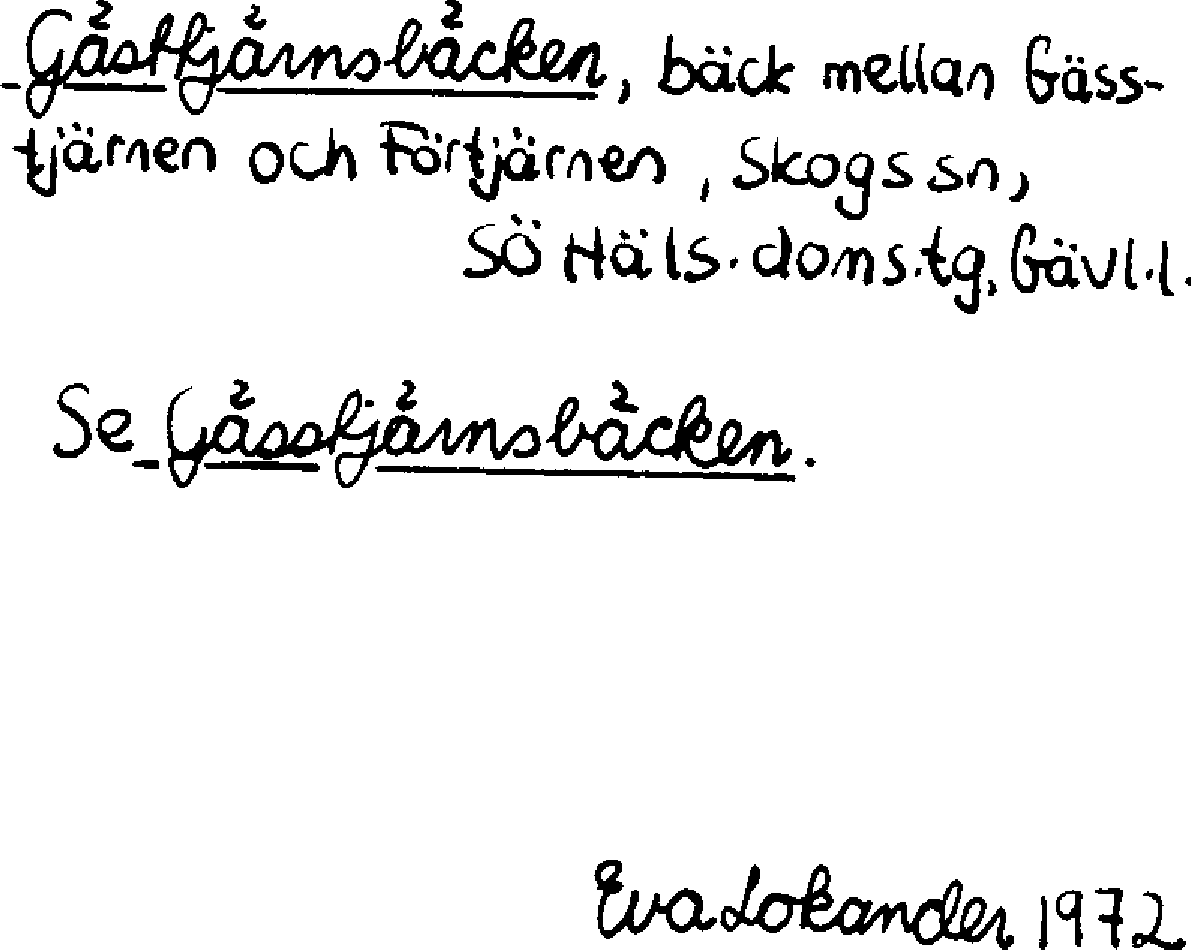 Gästtjärnsbäcken, bäck mellan Gäss-
tjärnen och Förtjärnen, Skogs sn,
SÖ Häls. doms.tg, Gävl.l.
Se Gässtjärnsbäcken.
Eva Lokander 1972